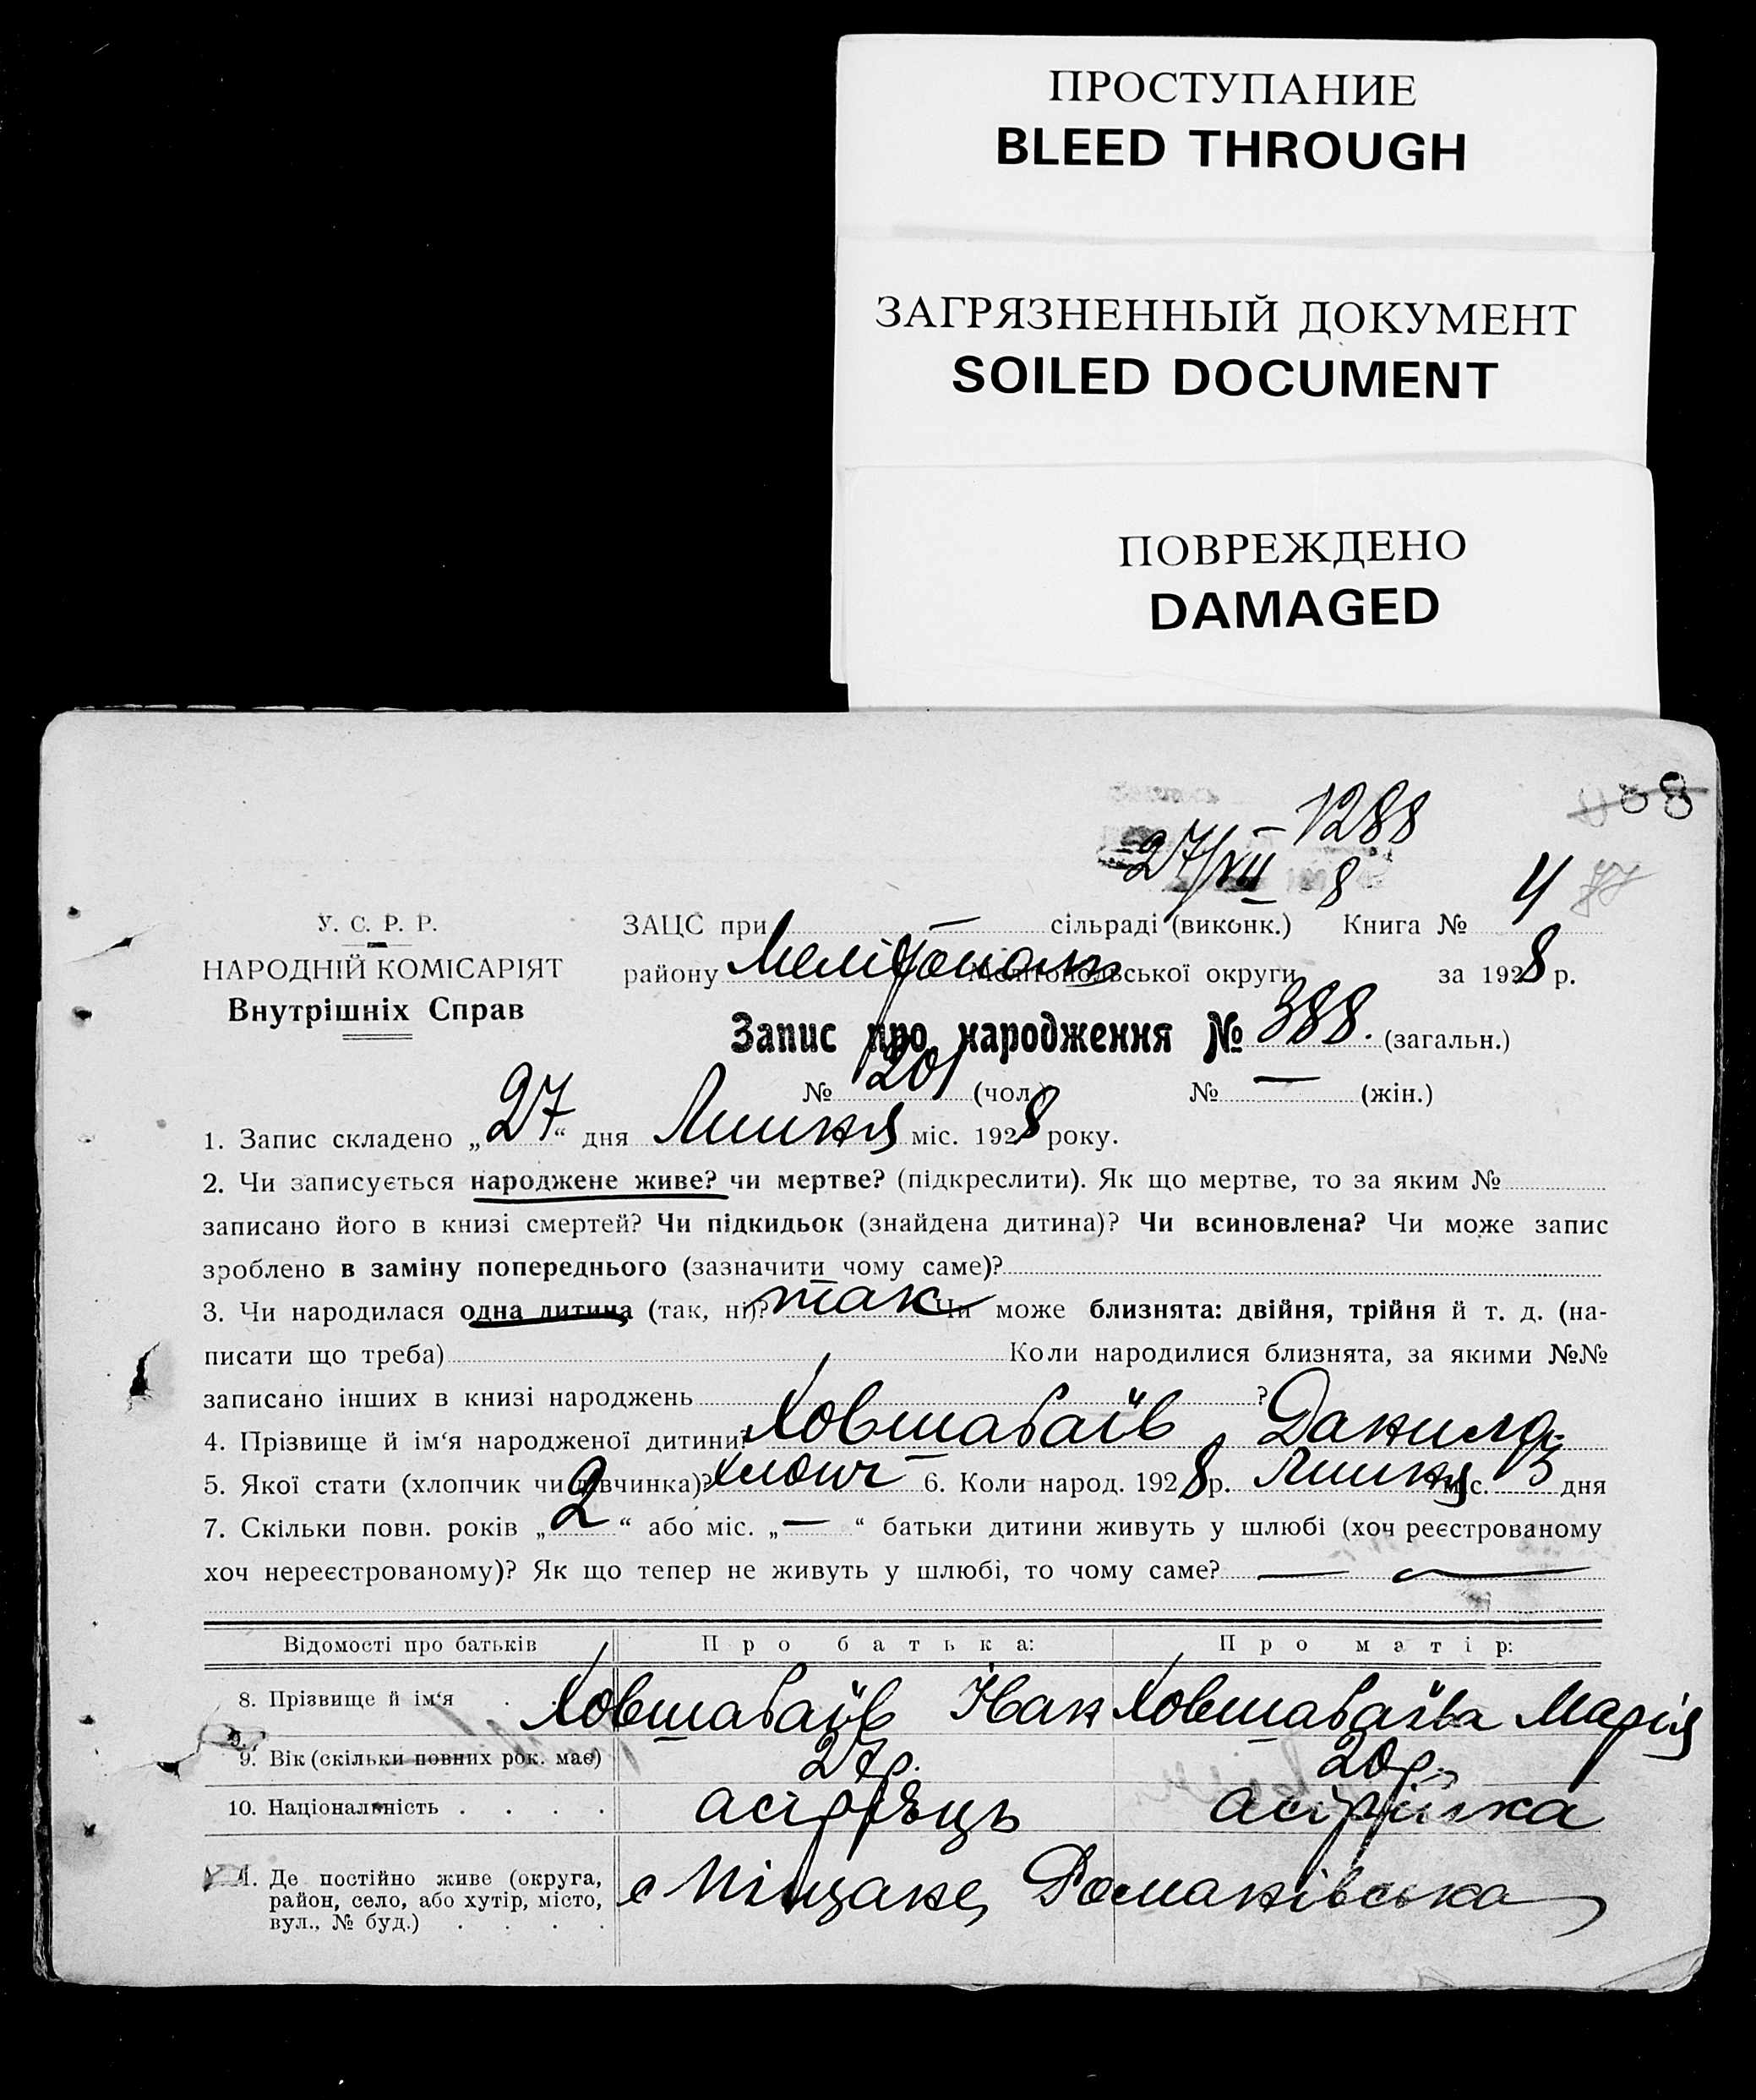 ПРОСТУПАНИЕ
BLEED THROUGH
ЗАГРЯЗНЕННЫЙ ДОКУМЕНТ
SOILED DOCUMENT
ПОВРЕЖДЕНО
DAMAGED
1288
27/VII 8
У. С. Р. Р.
НАРОДНІЙ КОМІСАРІЯТ
Внутрішніх Справ
ЗАЦС при — сільраді (виконк.) Книга № 4
району Мелітопольськ Мелітопольської округи за 1928 р.
Запис про народження № 388. (загальн.)
№ 201 (чол.) № — (жін.)
1. Запис складено „27“ дня Липня міс. 1928 року.
2. Чи записується народжене живе? чи мертве? (підкреслити). Як що мертве, то за яким №
записано його в книзі смертей? Чи підкидьок (знайдена дитина)? Чи всиновлена? Чи може запис
зроблено в заміну попереднього (зазначити чому саме)?
3. Чи народилася одна дитина (так, ні)? так Чи може близнята: двійня, трійня й т. д. (на-
писати що треба) Коли народилися близнята, за якими №№
записано інших в книзі народжень ?
4. Прізвище й ім‘я народженої дитини? Ховшабаїв Данило
5. Якої стати (хлопчик чи дівчинка)? хлопч 6. Коли народ. 1928 р. Липня міс. 3 дня
7. Скільки повн. років „2“ або міс. „—“ батьки дитини живуть у шлюбі (хоч реєстрованому
хоч нереєстрованому)? Як що тепер не живуть у шлюбі, то чому саме? — —
Відомості про батьків Про батька: Про матір:
8. Прізвище й ім‘я Ховшабаїв Іван Ховшабаїва Марія
9. Вік (скільки повних рок. має) 27р. 20р.
10. Національність . . . . асірієць асірійка
11. Де постійно живе (округа,
район, село, або хутір, місто,
вул., № буд.) . . . . с Піщане, Романівська